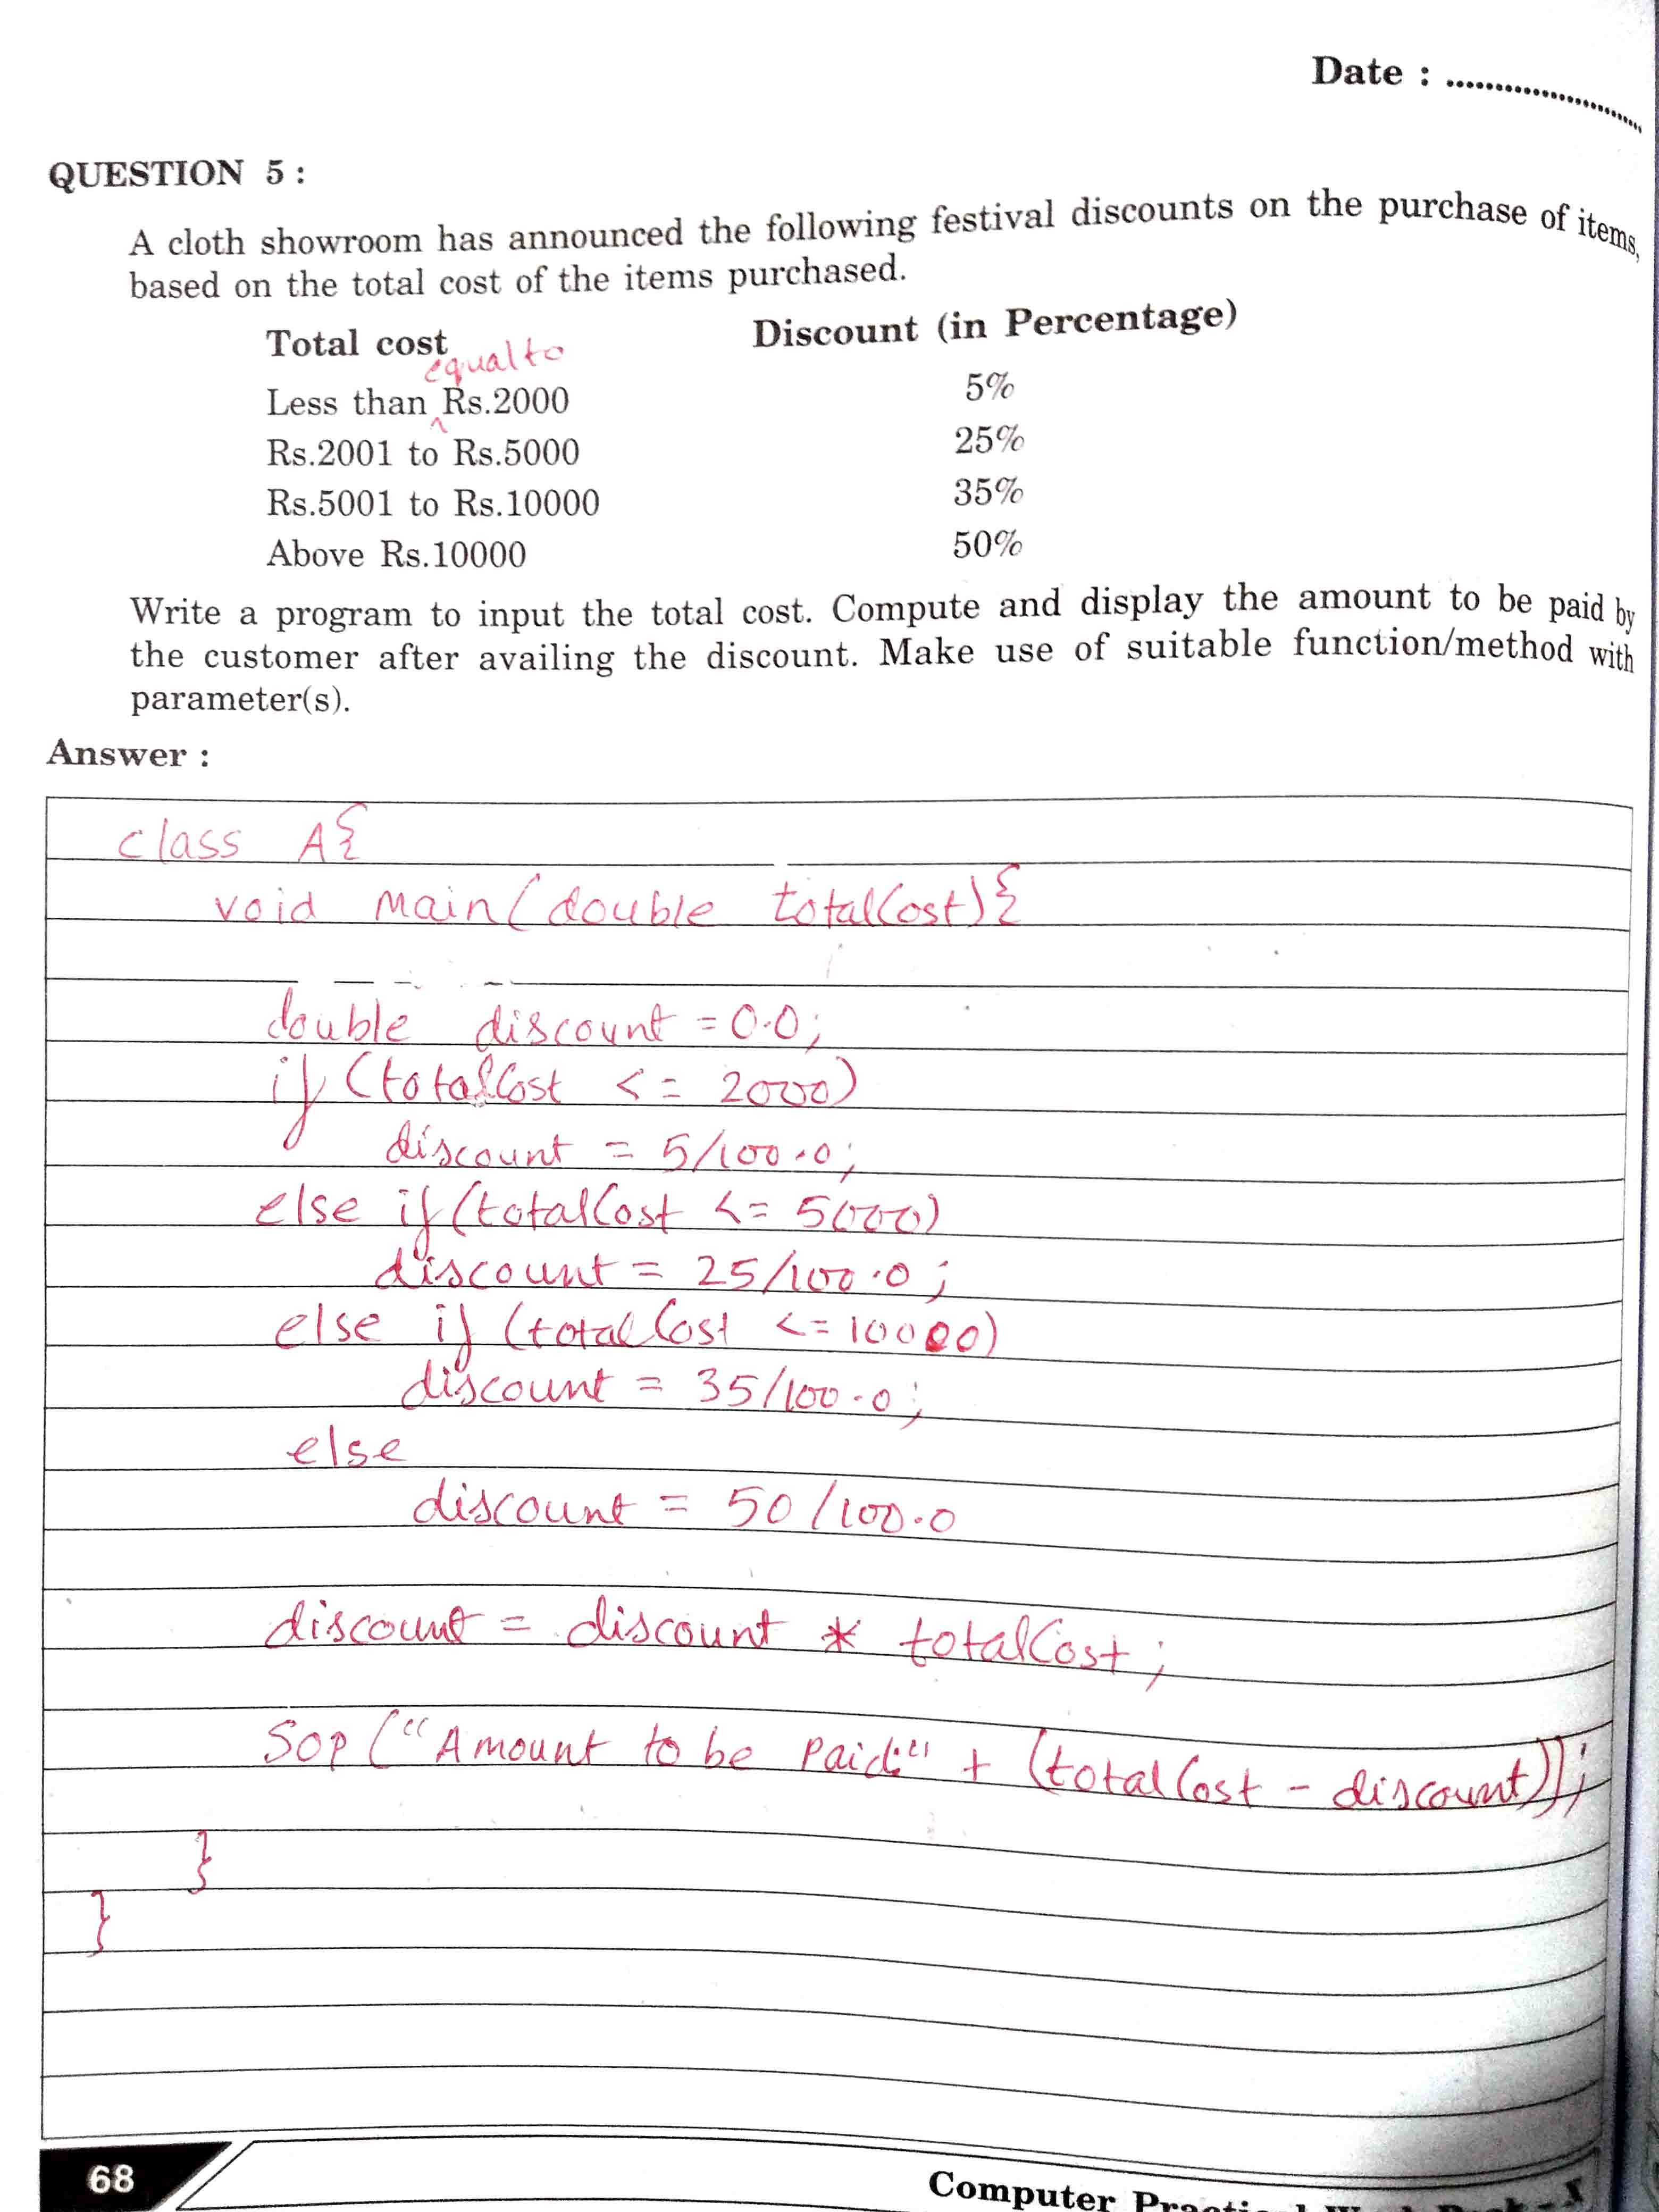 Date : ........................
QUESTION 5 :
A cloth showroom has announced the following festival discounts on the purchase of items,
based on the total cost of the items purchased.
Total cost Discount (in Percentage)
equal to
Less than ^ Rs.2000 5%
Rs.2001 to Rs.5000 25%
Rs.5001 to Rs.10000 35%
Above Rs.10000 50%
Write a program to input the total cost. Compute and display the amount to be paid by
the customer after availing the discount. Make use of suitable function/method with
parameter(s).
Answer :
class A{
void main(double totalCost){
double discount = 0.0;
if (totalCost <= 2000)
discount = 5/100.0;
else if (totalCost <= 5000)
discount = 25/100.0;
else if (totalCost <= 10000)
discount = 35/100.0;
else
discount = 50/100.0
discount = discount * totalCost;
Sop ("Amount to be paid:" + (totalCost - discount));
}
}
68
Computer